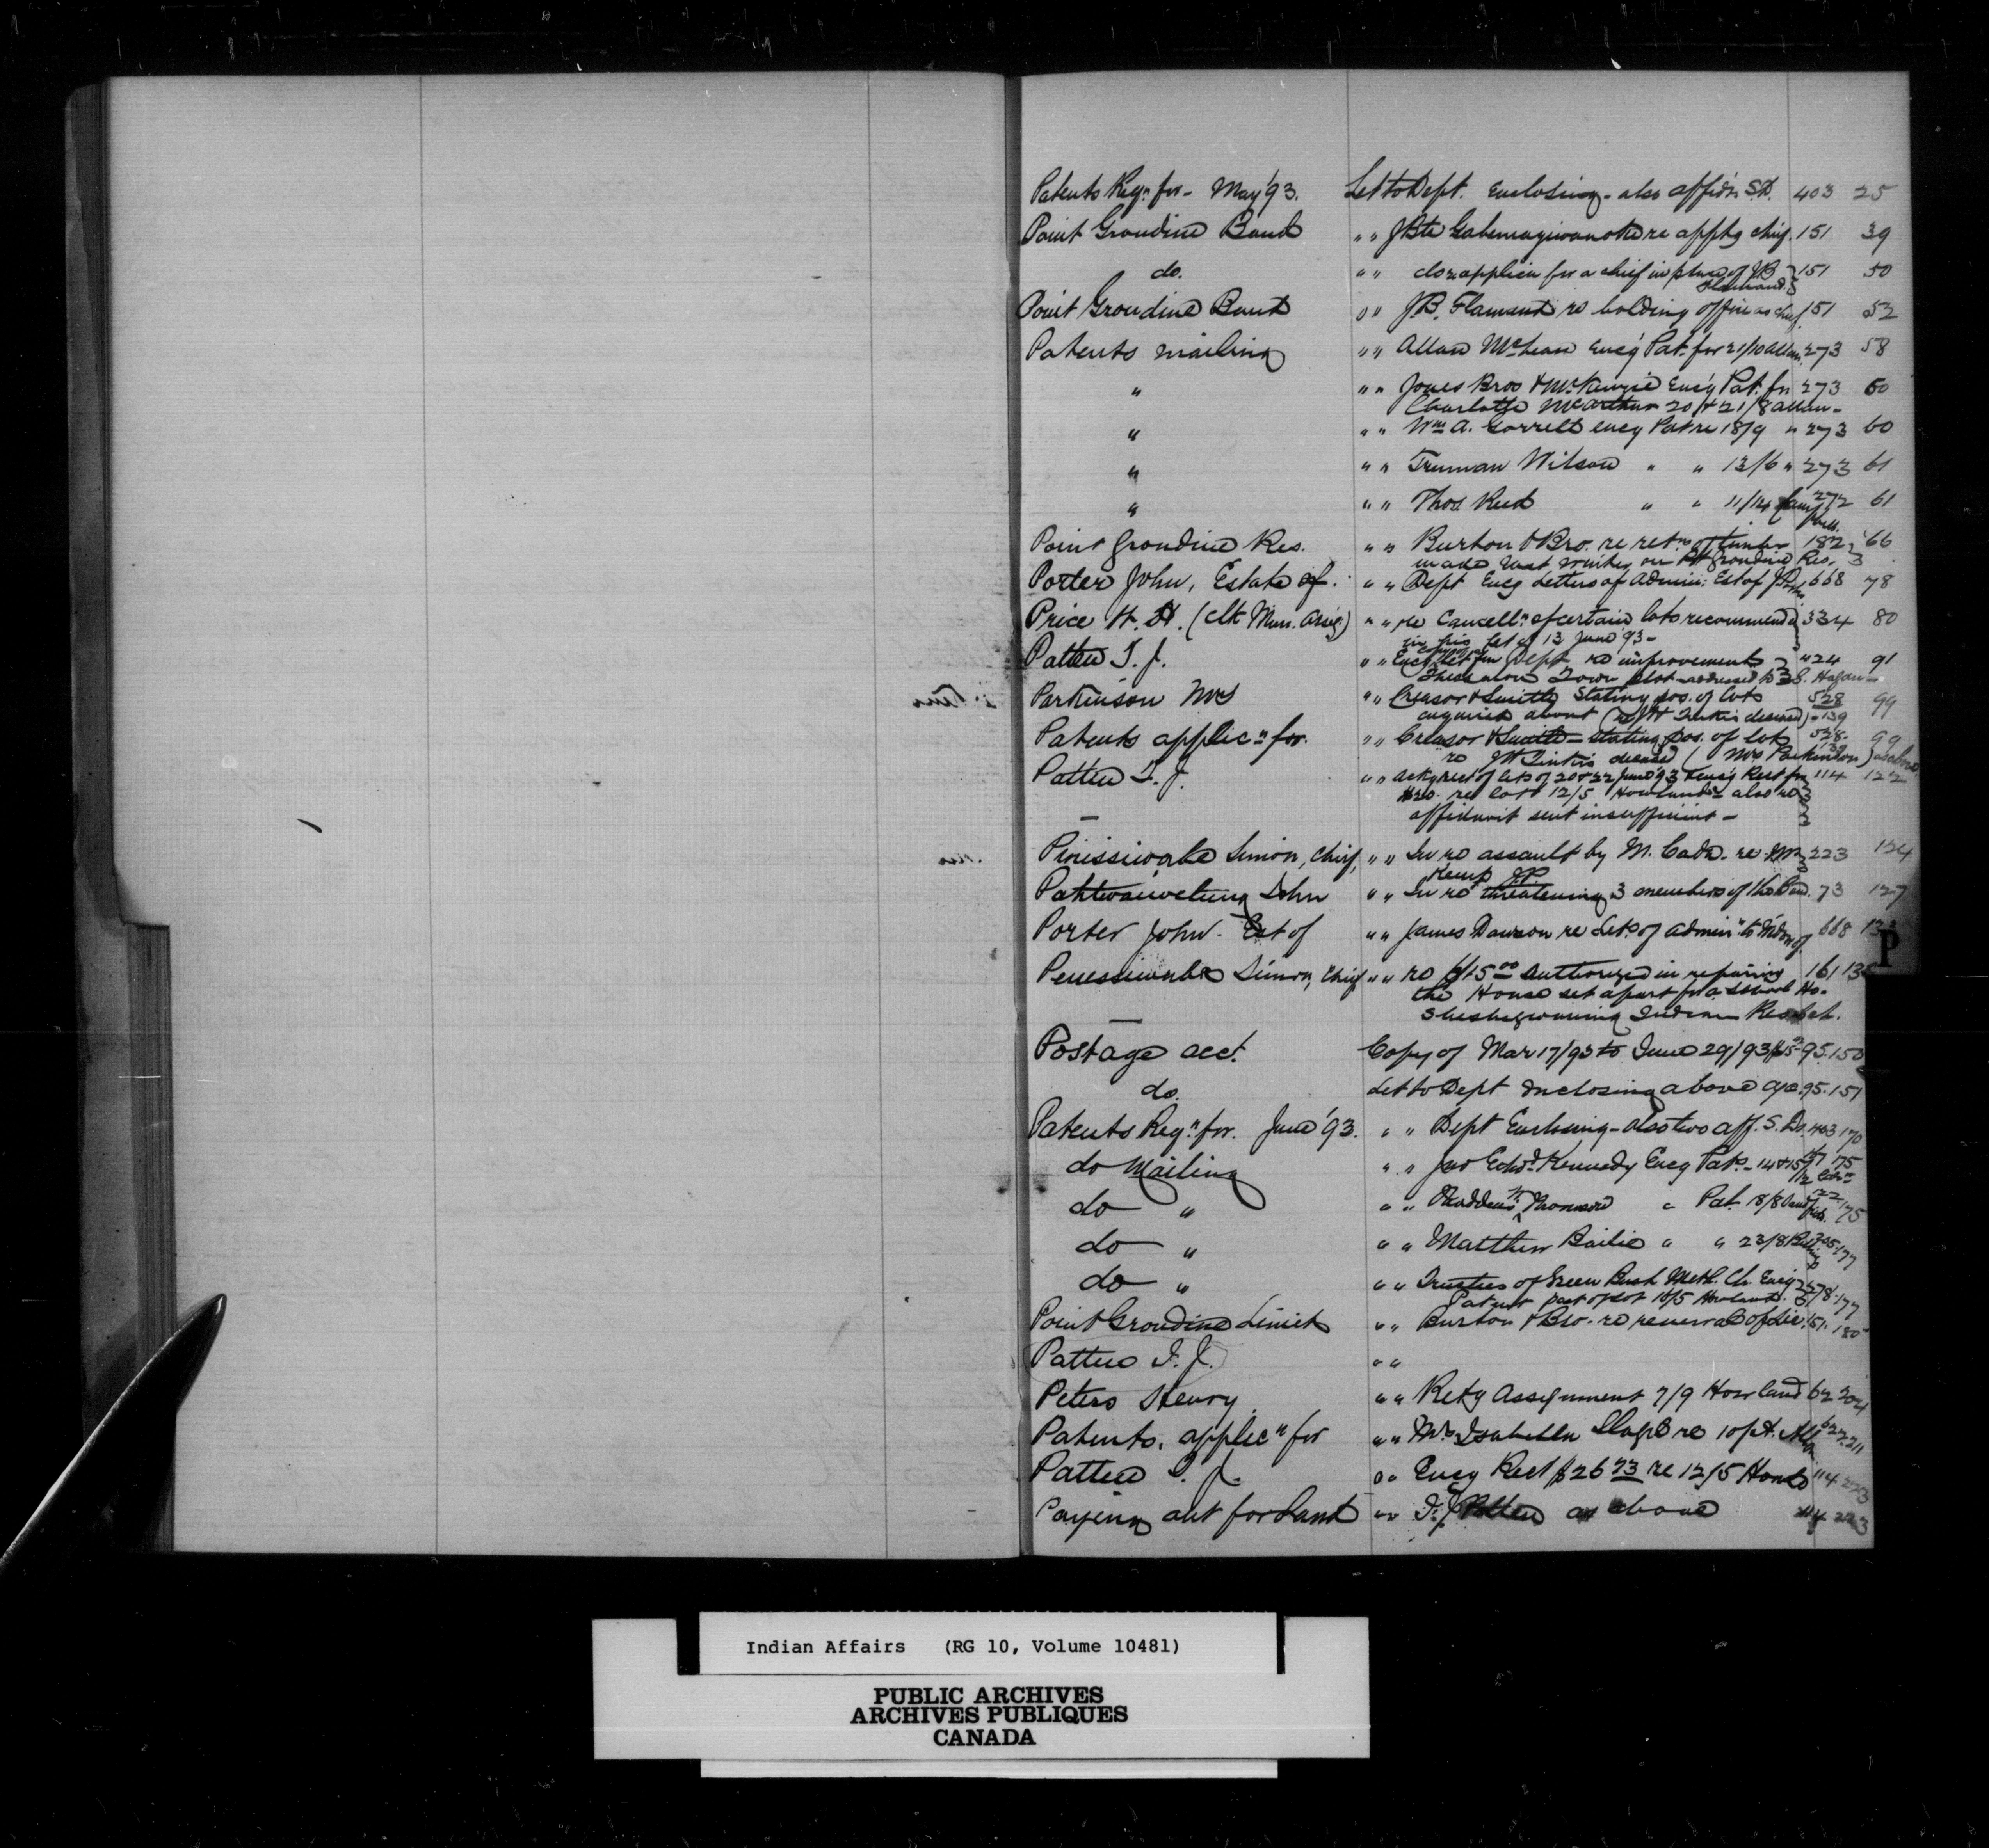 Patents Reqn for - May '93. Let to Dept. Enclosing - also affid'n S.D. 403 25
Point Grondine Band " " J Bte re apptg chief. 151 39
do. " " do re applic'n for a chief in place of J.B. Flamand. 151 50
Point Grondine Band " " J.B. Flamand re holding office as chief. 151 52
Patents mailing " " Allan McLean enc'g Pat. for 21/10 Allan. 273 58
" " " Jones Bros & McKenzie enc'g Pat. for 273 60
Charlotte McArthur 20 & 21/8 Allan -
" " " Wm A. Gorrell encg Pat re 18/9 " 273 60
" " " Truman Wilson " " 13/6 " 273 61
" " " Thos Reid " " 11/14 272 61
Point Grondine Res. " " Burton & Bro. re retn of timber 182 66
made last winter on Pt Grondine Res.
Porter John, Estate of. " " Dept Encg Letters of Admin: Est of J. 668 78
Price H. A. (Clk Mun. Assig.) " " re Cancelln of certain lots recommend'd 334 80
in his let of 13 June '93 -
Patten T. J. " " Encg copy of let fm Dept re improvements 424 91
Thessalon Town plot addressed to S. Hagan
Parkinson Mrs " " Creasor & Smith Stating pos. of lots 528 99
enquired about (re J H deceased) - 139
Patents applicn for. " " Creasor & Smith - stating pos. of lot 528. 99
re J H deceased (Mrs Parkinson) 139
Patten T. J. " " Ackg rect of lets of 20 & 22 June '93 & encg Rect for 114 122
$20. re lot 12/5 Howland - also re
affidavit sent insufficient -
Simon, Chief, " " In re assault by M. re Mr 223 124
Kemp JP
John " " In re threatening 3 members of the Band. 73 127
Porter John. Est of " " James Dawson re Lets of Admin to of 668
P
Simon, Chief " " re $15.00 authorized in repairing 161
the House set apart for a School Ho.
Sheshegwaning Indian Res
Postage acct. Copy of Mar 17/93 to June 29/93 95. 150
do. Let to Dept Inclosing above a/c. 95. 151
Patents Reqn for. June '93. " " Dept Enclosing - also two aff. S. Ds. 403 170
do Mailing " " Jno Edwd Kennedy Encg Pats - 14 & 15 175
do " " " Thaddeus W. " Pat. 18/8 175
do " " " Matthew Bailie " " 23/8 177
do " " " Trustees of Green Bush Meth. Ch. Encg 278. 177
Patent part of lot 16/5 Howland.
Point Grondine Limit " " Burton & Bro. re renewal of Lic. 151. 180
Patten T. J. " "
Peters Henry. " " Retg Assignment 7/9 Howland 62 204
Patents, applicn for " " Mrs Isabella re 10/ 211
Patten T. J. " " Encg Rect $26 73 re 12/5 Howld 114 223
Paying abt for Land " " T. J. Patten as above 114 223
Indian Affairs (RG 10, Volume 10481)
PUBLIC ARCHIVES
ARCHIVES PUBLIQUES
CANADA